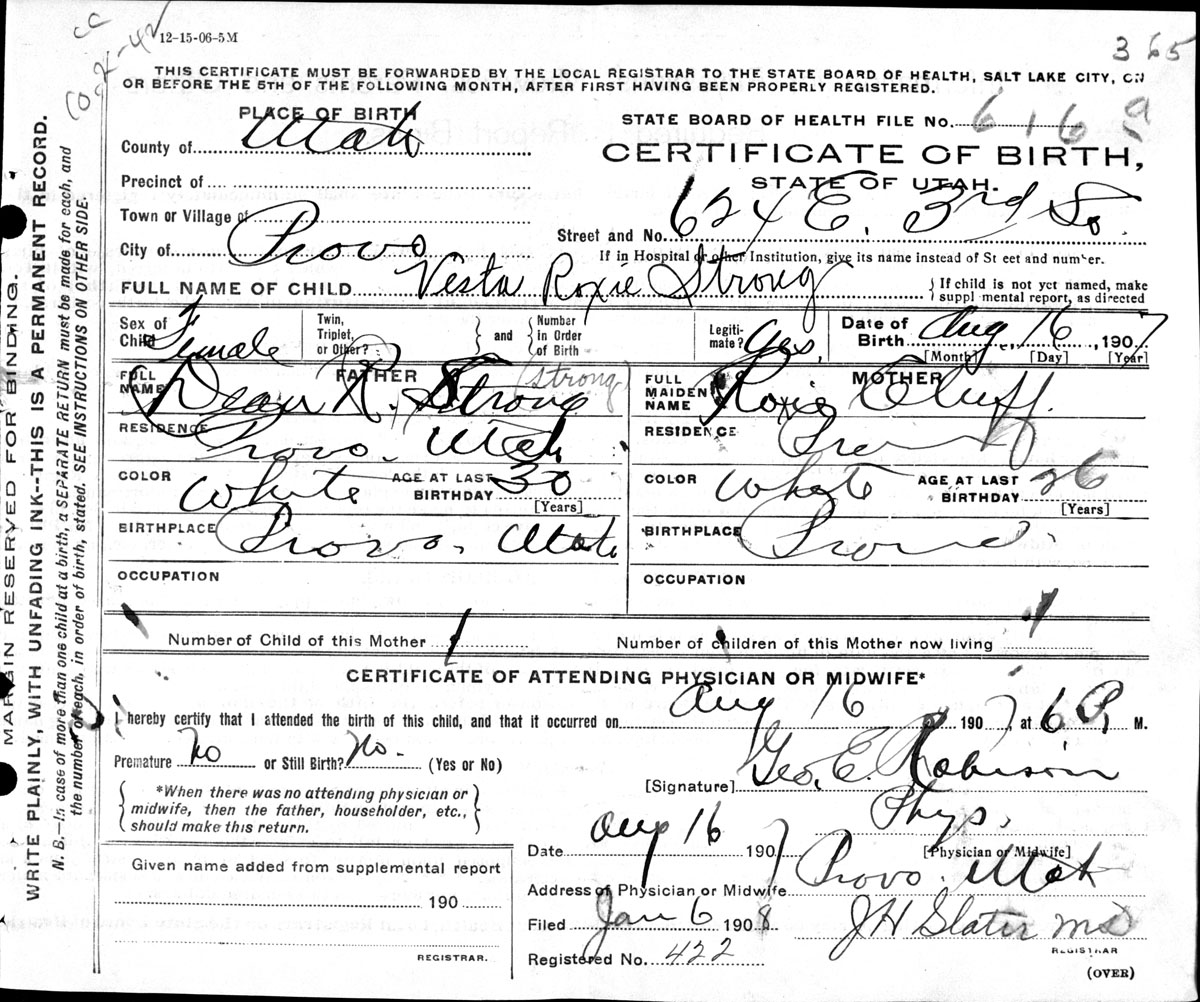 12-15-06-5M
365
THIS CERTIFICATE MUST BE FORWARDED BY THE LOCAL REGISTRAR TO THE STATE BOARD OF HEALTH, SALT LAKE CITY, ON
OR BEFORE THE 5TH OF THE FOLLOWING MONTH, AFTER FIRST HAVING BEEN PROPERLY REGISTERED.
MARGIN RESERVED FOR BINDING.
WRITE PLAINLY, WITH UNFADING INK--THIS IS A PERMANENT RECORD.
N. B.—In case of more than one child at a birth, a SEPARATE RETURN must be made for each, and
the number of each, in order of birth, stated. SEE INSTRUCTIONS ON OTHER SIDE.
PLACE OF BIRTH
County of Utah
Precinct of
Town or Village of
City of Provo
STATE BOARD OF HEALTH FILE No. 6169
CERTIFICATE OF BIRTH,
STATE OF UTAH.
Street and No. 624 E. 3rd So.
If in Hospital or other Institution, give its name instead of St eet and number.
FULL NAME OF CHILD Vesta Roxie Strong
If child is not yet named, make
suppl mental report, as directed
Sex of Child Female
Twin, Triplet, or Other?
and
Number in Order of Birth
Legiti-mate? Yes.
Date of Birth Aug 16, 1907
[Month] [Day] [Year]
FATHER
FULL NAME Dean R. Strong
Strong
RESIDENCE Provo. Utah
COLOR White AGE AT LAST BIRTHDAY 30
[Years]
BIRTHPLACE Provo. Utah
OCCUPATION
MOTHER
FULL MAIDEN NAME Roxie Cluff
RESIDENCE
COLOR White AGE AT LAST BIRTHDAY 26
[Years]
BIRTHPLACE
OCCUPATION
Number of Child of this Mother 1
Number of children of this Mother now living 1
CERTIFICATE OF ATTENDING PHYSICIAN OR MIDWIFE*
I hereby certify that I attended the birth of this child, and that it occurred on Aug 16 1907, at 6 P. M.
Premature No or Still Birth? No. (Yes or No)
[Signature] Geo. E. Robison
Phys.
[Physician or Midwife]
*When there was no attending physician or
midwife, then the father, householder, etc.,
should make this return.
Date Aug 16 1907
Address of Physician or Midwife Provo. Utah
Given name added from supplemental report
190
REGISTRAR.
Filed Jan 6 1908
J H Slater MD
REGISTRAR
Registered No. 422
(OVER)